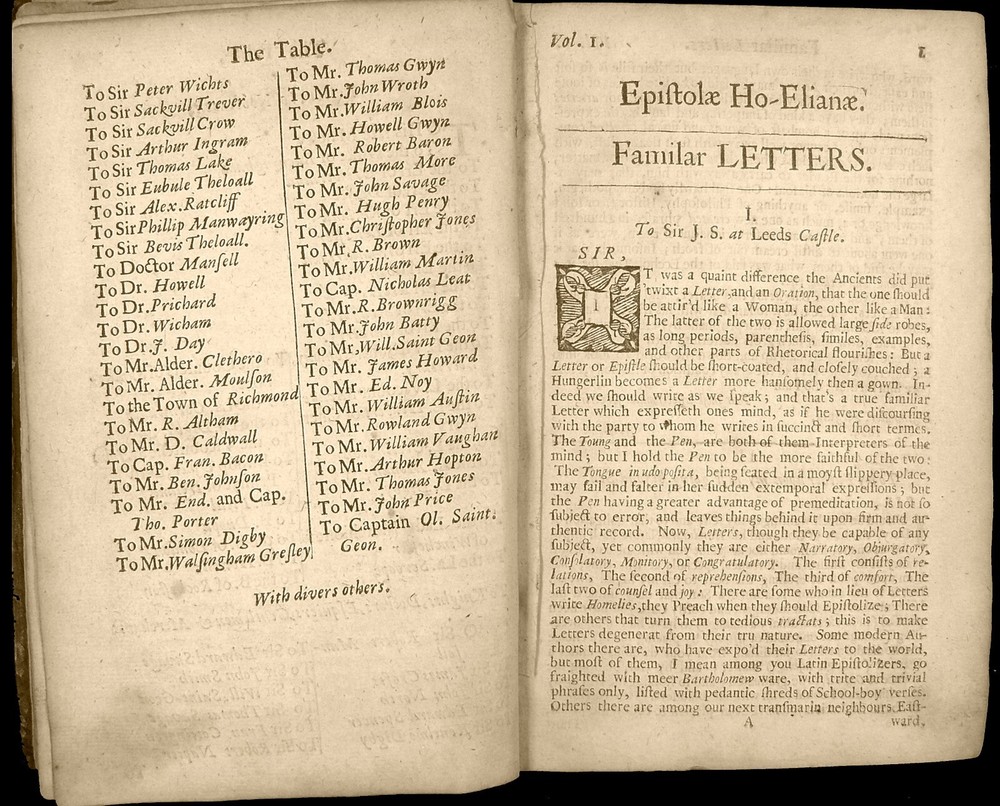 The Table.
To Sir Peter Wichts
To Sir Sackvill Trever
To Sir Sackvill Crow
To Sir Arthur Ingram
To Sir Thomas Lake
To Sir Eubule Theloall
To Sir Alex. Ratcliff
To Sir Phillip Manwayring
To Sir Bevis Theloall.
To Doctor Manſell
To Dr. Howell
To Dr. Prichard
To Dr. Wicham
To Dr. J. Day
To Mr. Alder. Clethero
To Mr. Alder. Moulſon
To the Town of Richmond
To Mr. R. Altham
To Mr. D. Caldwall
To Cap. Fran. Bacon
To Mr. Ben. Johnſon
To Mr. End. and Cap.
Tho. Porter
To Mr. Simon Digby
To Mr. Walſingham Greſley
To Mr. Thomas Gwyn
To Mr. John Wroth
To Mr. William Blois
To Mr. Howell Gwyn
To Mr. Robert Baron
To Mr. Thomas More
To Mr. John Savage
To Mr. Hugh Penry
To Mr. Chriſtopher Jones
To Mr. R. Brown
To Mr. William Martin
To Cap. Nicholas Leat
To Mr. R. Brownrigg
To Mr. John Batty
To Mr. Will. Saint Geon
To Mr. James Howard
To Mr. Ed. Noy
To Mr. William Auſtin
To Mr. Rowland Gwyn
To Mr. William Vaughan
To Mr. Arthur Hopton
To Mr. Thomas Jones
To Mr. John Price
To Captain Ol. Saint.
Geon.
With divers others.
Vol. 1. 1
Epiſtolæ Ho-Elianæ.
Familar LETTERS.
I.
To Sir J. S. at Leeds Caſtle.
SIR,
IT was a quaint difference the Ancients did put
'twixt a Letter, and an Oration, that the one ſhould
be attir'd like a Woman, the other like a Man:
The latter of the two is allowed large ſide robes,
as long periods, parentheſis, ſimiles, examples,
and other parts of Rhetorical flouriſhes: But a
Letter or Epiſtle ſhould be ſhort-coated, and cloſely couched; a
Hungerlin becomes a Letter more hanſomely then a gown. In-
deed we ſhould write as we ſpeak; and that's a true familiar
Letter which expreſſeth ones mind, as if he were diſcourſing
with the party to whom he writes in ſuccinct and ſhort termes.
The Toung and the Pen, are both of them Interpreters of the
mind; but I hold the Pen to be the more faithful of the two:
The Tongue in udo poſita, being ſeated in a moyſt ſlippery place,
may fail and falter in her ſudden extemporal expreſſions; but
the Pen having a greater advantage of premeditation, is not ſo
ſubject to error, and leaves things behind it upon firm and au-
thentic record. Now, Letters, though they be capable of any
ſubject, yet commonly they are either Narratory, Objurgatory,
Conſolatory, Monitory, or Congratulatory. The firſt conſiſts of re-
lations, The ſecond of reprehenſions, The third of comfort, The
laſt two of counſel and joy: There are ſome who in lieu of Letters
write Homelies, they Preach when they ſhould Epiſtolize; There
are others that turn them to tedious tractats; this is to make
Letters degenerat from their tru nature. Some modern Au-
thors there are, who have expo'd their Letters to the world,
but moſt of them, I mean among you Latin Epiſtolizers, go
fraighted with meer Bartholomew ware, with trite and trivial
phraſes only, liſted with pedantic ſhreds of School-boy verſes.
Others there are among our next tranſmarin neighbours Eaſt-
A ward,